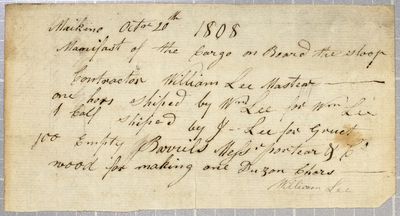 Maikino Octor 20th 1808
Manifast of the Cargo on Board the sloop
Contractor William Lee Master
one hors shiped by Wm Lee for Wm Lee
1 Calf shiped by J Lee for Gruet
100 Empty Barrils Messrs portear & Co
wood for making one Duzon Chars
William Lee